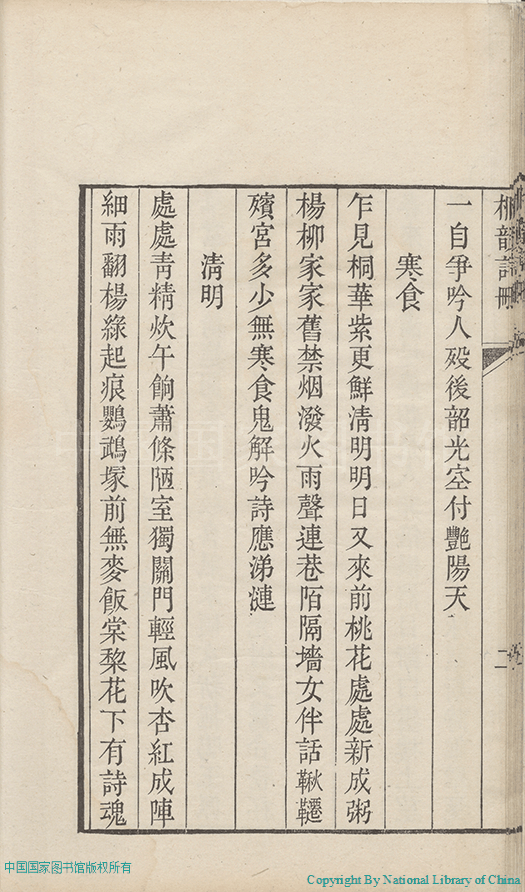 一自爭吟人歿後韶光空付艷陽天
寒食
乍見桐華紫更鮮清明明日又來前桃花處處新成粥
楊柳家家舊禁烟潑火雨聲連巷陌隔墻女伴話鞦韆
殯宮多少無寒食鬼解吟詩應涕漣
清明
處處青精炊午餉蕭條陋室獨關門輕風吹杏紅成陣
細雨翻楊綠起痕鸚鵡塚前無麥飯棠棃花下有詩魂
二
中国国家图书馆版权所有
Copyright By National Library of China